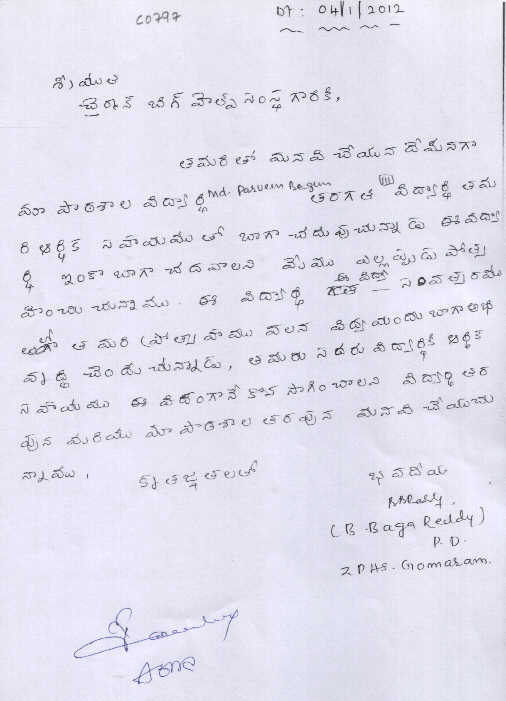 C0797
Dt: 04/1/2012
శ్రీయుత
చైర్మన్ బిగ్ హెల్ప్ సంస్థ గారికి,
తమరితో మనవి చేయున దేమనగా
మా పాఠశాల విద్యార్థి Md. Parveen Begum తరగతి (III) విద్యార్థి తమ
రి ఆర్థిక సహాయము తో బాగా చదువుచున్నాడు ఈ విద్యా
ర్థి ఇంకా బాగా చదవాలని మేము ఎల్లప్పుడు ప్రోత్స
హించు చున్నాము. ఈ విద్యార్థి ఈ విద్యా సంవత్సరము
లో తమరి ప్రోత్సాహము వలన విద్యయందు బాగా అభి
వృద్ధి చెందుచున్నాడు, తమరు సదరు విద్యార్థికి ఆర్థిక
సహాయము ఈ విధంగానే కొన సాగించాలని విద్యార్థి తర
పున మరియు మా పాఠశాల తరపున మనవి చేయుచు
న్నాము.
కృతజ్ఞతలతో
భవదీయ
(B. Baga Reddy)
P.D.
ZPHS. Gomaram.